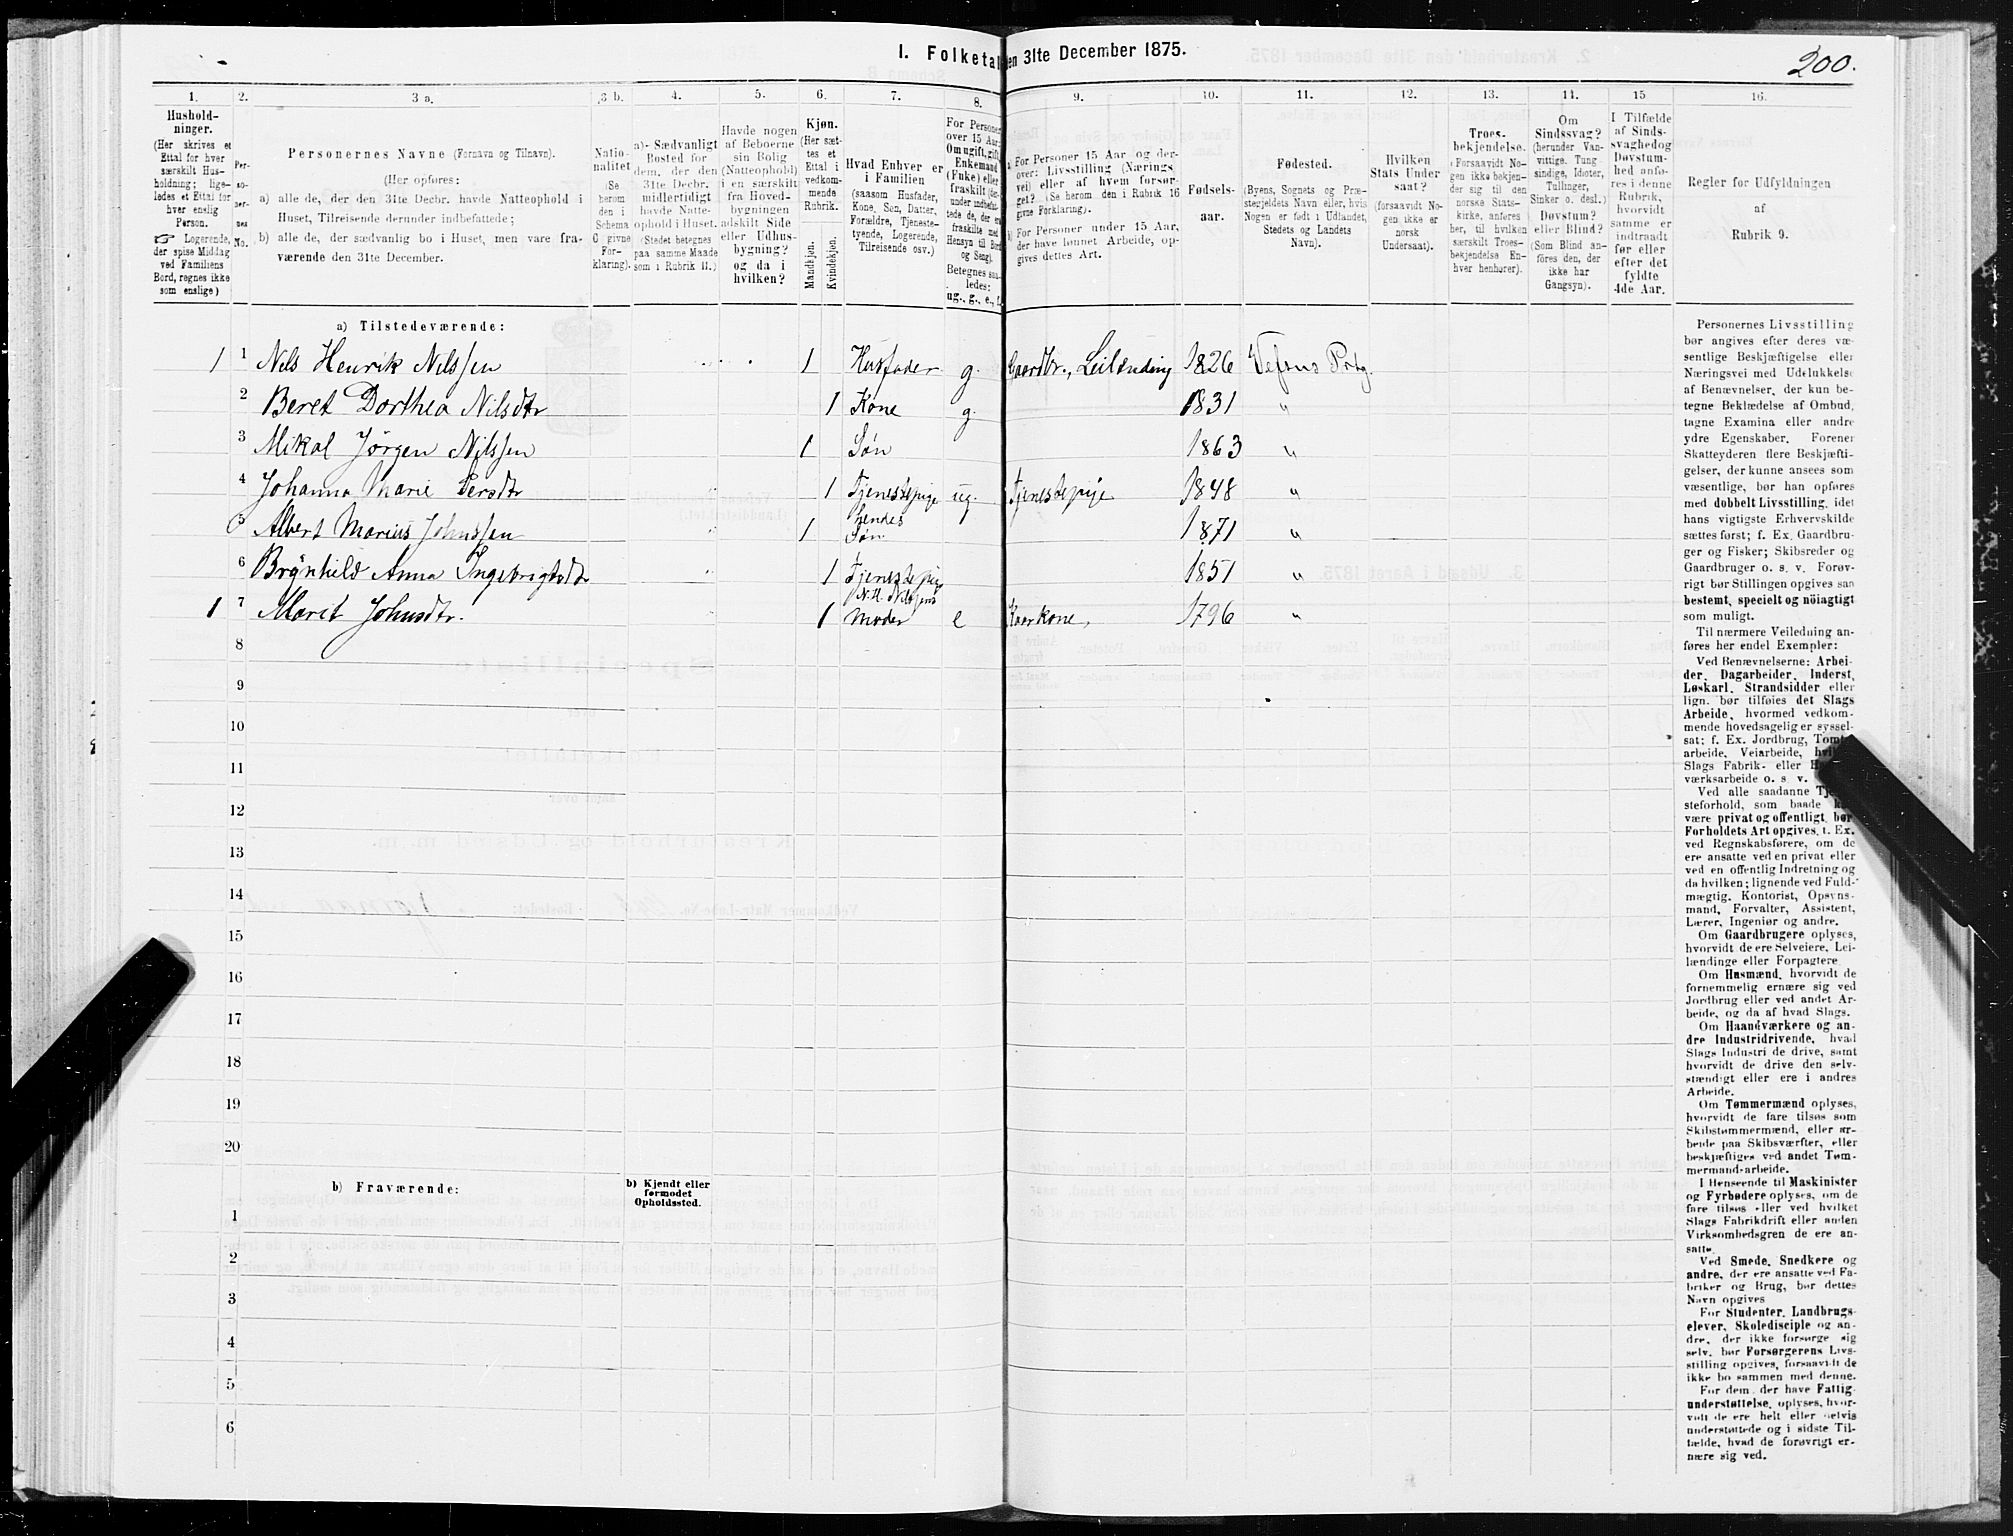 I. Folketal den 31te December 1875.
200.
1.
Hushold-
ninger.
(Her skrives et
Ettal for hver
særskilt Hus-
holdning; lige-
ledes et Ettal for
hver enslig
Person.
☞ Logerende,
der spise Middag
ved Familiens
Bord, regnes ikke
som enslige)
2.
Per-
so-
ner-
nes
No.
3 a.
Personernes Navne (Fornavn og Tilnavn).
(Her opføres:
a) alle de, der den 31te Decbr. havde Natteophold i
Huset, Tilreisende derunder indbefattede;
b) alle de, der sædvanlig bo i Huset, men vare fra-
værende den 31te December.
3 b.
Natio-
nalitet
(Se
herom
den i
Schema
C givne
For-
klaring).
4.
a)- Sædvanligt
Bosted for
dem, der den
31te Decbr.
midlertidigt
havde Natte-
ophold i Huset.
(Stedet betegnes
paa samme Maade
som i Rubrik 11.)
5.
Havde nogen
af Beboerne
sin Bolig
(Natteophold)
i en særskilt
fra Hoved-
bygningen
adskilt Side
eller Udhus-
bygning?
og da i
hvilken?
6.
Kjøn.
(Her sæt-
tes et
Ettal i
vedkom-
mende
Rubrik.
Mandkjøn.
Kvindekjøn.
7.
Hvad Enhver er
i Familien
(saasom Husfader,
Kone, Søn, Datter,
Forældre, Tjeneste-
tyende, Logerende,
Tilreisende osv.)
8.
For Personer
over 15 Aar:
Om ugift, gift,
Enkemand
(Fuke) eller
fraskilt
Betegnes saa-
ledes:
ug., g., e., f.
9.
a) For Personer 15 Aar og der-
over: Livsstilling (Nærings-
vei) eller af hvem forsør-
get? (Se herom den i Rubrik 16
givne Forklaring).
b) For Personer under 15 Aar,
der have lønnet Arbeide, op-
gives dettes Art.
10.
Fødsels-
aar.
11.
Fødested.
(Byens, Sognets og Præ-
stegjeldets Navn eller, hvis
Nogen er født i Udlandet,
Stedets og Landets
Navn).
12.
Hvilken
Stats Under
saat?
(forsaavidt No-
gen ikke er
norsk
Undersaat).
13.
Troes-
bekjendelse.
(Forsaavidt No-
gen ikke bekjen-
der sig til den
norske Stats-
kirke, anføres
her, til hvilken
særskilt Troes-
bekjendelse En-
hver henhører).
14.
Om
Sindssvag?
(herunder Van-
vittige, Tung
sindige, Idioter,
Tullinger,
Sinker o. desl.)
Døvstum?
eller Blind?
(Som Blind an-
føres den, der
ikke har
Gangsyn).
15
I Tilfælde
af Sinds-
svaghed og
Døvstum-
hed anfø-
res i denne
Rubrik,
hvorvidt
samme er
indtraadt
før eller
efter det
fyldte
4de Aar.
16.
Regler for Udfyldningen
af
Rubrik 9.
a) Tilstedeværende:
1 1 Nils Henrik Nilssen 1 Husfader g. Gaardbr., Leilænding 1826 Vefsns Prstg.
2 Beret Dorthea Nilsdtr 1 Kone g. 1831 "
3 Mikal Jörgen Nilssen 1 Søn 1863 "
4 Johanna Marie Persdtr 1 Tjenestepige ug. Tjenestepije 1848 "
5 Albert Marius Johnssen 1 hendes Søn 1871 "
6 Brynhild Anna Ingebrigtsdtr 1 Tjenestepige 1851 "
1 7 Marit Johnsdtr. 1 N. H. Nilssens Moder e Kaarkone, 1796 "
8
9
10
11
12
13
14
15
16
17
18
19
20
b) Fraværende:
b) Kjendt eller
formodet
Opholdssted.
1
2
3
4
5
6
Personernes Livsstilling
bør angives efter deres væ-
sentlige Beskjæftigelse eller
Næringsvei med Udelukkelse
af Benævnelser, der kun be-
tegne Beklædelse af Ombud,
tagne Examina eller andre
ydre Egenskaber. Forener
Skatteyderen flere Beskjæfti-
gelser, der kunne ansees som
væsentlige, bør han opføres
med dobbelt Livsstilling, idet
hans vigtigste Erhvervskilde
sættes først; f. Ex. Gaardbru-
ger og Fisker; Skibsreder og
Gaardbruger o. s. v. Forøv-
rigt bør Stillingen opgives saa
bestemt, specielt og nöiagtigt
som muligt.
Til nærmere Veiledning an-
føres her endel Exempler:
Ved Benævnelserne: Arbei-
der, Dagarbeider, Inderst,
Løskarl, Strandsidder eller
lign. bør tilføies det Slags
Arbeide, hvormed vedkom-
mende hovedsagelig er syssel-
sat; f. Ex. Jordbrug, Tomte-
arbeide, Veiarbeide, hvilket
Slags Fabrik- eller Haand-
værksarbeide o. s. v.
Ved alle saadanne Tjene-
steforhold, som baade kan
være privat og offentligt, bør
Forholdets Art opgives, t. Ex.
ved Regnskabsførere, om de
ere ansatte ved en privat eller
ved en offentlig Indretning og
da hvilken; lignende ved Fuld-
mægtig, Kontorist, Opsyns-
mand, Forvalter, Assistent,
Lærer, Ingeniør og andre.
Om Gaardbrugere oplyses,
hvorvidt de ere Selveiere, Lei-
lændinge eller Forpagtere
Om Husmænd, hvorvidt de
fornemmelig ernære sig ved
Jordbrug eller ved andet Ar-
beide, og da af hvad Slags.
Om Haandværkere og an-
dre Industridrivende, hvad
Slags Industri de drive, samt
hvorvidt de drive den selv-
stændigt eller ere i andres
Arbeide.
Om Tømmermænd oplyses,
hvorvidt de fare tilsøs som
Skibstømmermænd, eller ar-
beide paa Skibsværfter, eller
beskjæftiges ved andet Tøm-
mermand-arbeide.
I Henseende til Maskinister
og Fyrbødere oplyses, om de
fare tilsøs eller ved hvilket
Slags Fabrikdrift eller anden
Virksomhedsgren de ere an-
satte.
Ved Smede, Snedkere og
andre, der ere ansatte ved Fa-
briker og Brug, bør dettes
Navn opgives
For Studenter, Landbrugs-
elever, Skoledisciple og an-
dre, der ikke forsørge sig
selv, bør Forsørgerens Livs-
stilling opgives, forsaavidt de
ikke bo sammen med denne.
For dem, der have Fattig-
understøttelse, oplyses, hvor-
vidt de ere helt eller delvis
understøttede og i sidste Til-
fælde, hvad de forøvrigt er-
nære sig ved.